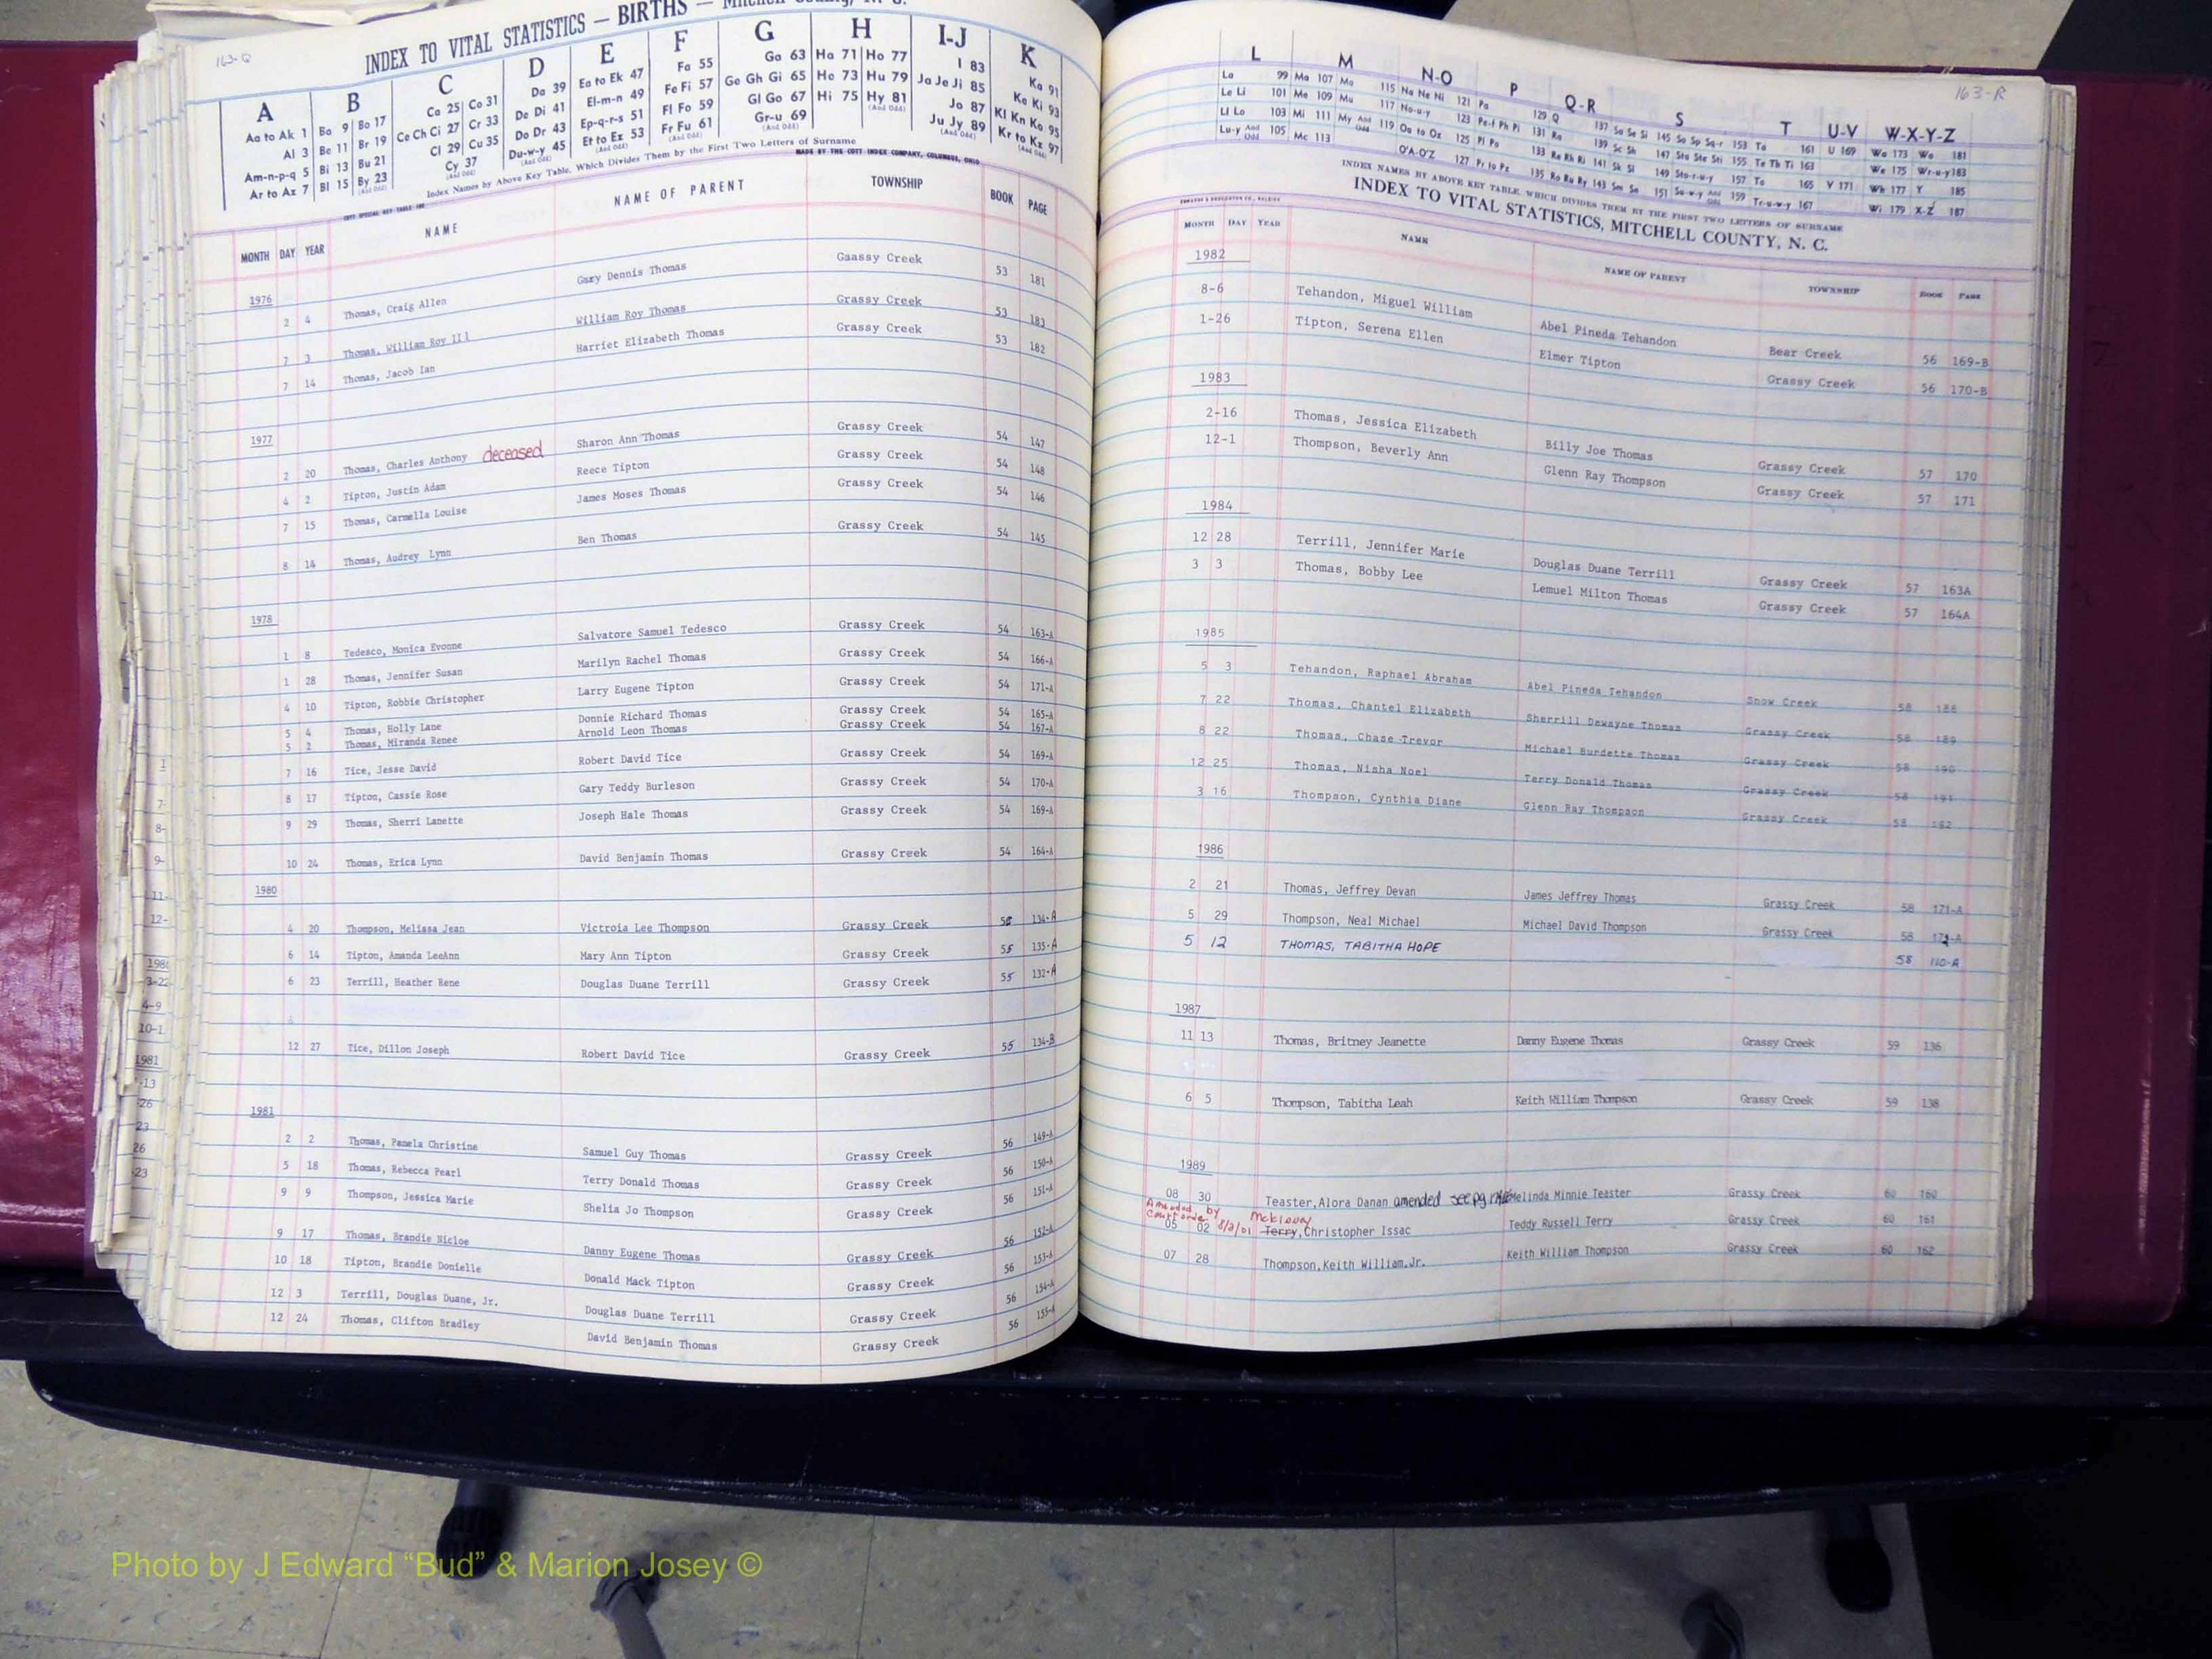 163-Q
INDEX TO VITAL STATISTICS — BIRTHS — Mitchell County, N. C.
A B C D E F G H I-J K
Aa to Ak 1 Ba 9 Bo 17 Ca 25 Co 31 Da 39 Ea to Ek 47 Fa 55 Ga 63 Ha 71 Ho 77 I 83 Ka 91
Al 3 Be 11 Br 19 Ce Ch Ci 27 Cr 33 De Di 41 El-m-n 49 Fe Fi 57 Ge Gh Gi 65 He 73 Hu 79 Ja Je Ji 85 Ke Ki 93
Am-n-p-q 5 Bi 13 Bu 21 Cl 29 Cu 35 Do Dr 43 Ep-q-r-s 51 Fl Fo 59 Gl Go 67 Hi 75 Hy 81 Jo 87 Kl Kn Ko 95
Ar to Az 7 Bl 15 By 23 Cy 37 Du-w-y 45 Et to Ex 53 Fr Fu 61 Gr-u 69 Ju Jy 89 Kr to Kz 97
Index Names by Above Key Table, Which Divides Them by the First Two Letters of Surname
MADE BY THE COTT INDEX COMPANY, COLUMBUS, OHIO
MONTH DAY YEAR NAME NAME OF PARENT TOWNSHIP BOOK PAGE
1976
2 4 Thomas, Craig Allen Gary Dennis Thomas Gaassy Creek 53 181
7 3 Thomas, William Roy III William Roy Thomas Grassy Creek 53 183
7 14 Thomas, Jacob Ian Harriet Elizabeth Thomas Grassy Creek 53 182
1977
2 20 Thomas, Charles Anthony deceased Sharon Ann Thomas Grassy Creek 54 147
4 2 Tipton, Justin Adam Reece Tipton Grassy Creek 54 148
7 15 Thomas, Carmella Louise James Moses Thomas Grassy Creek 54 146
8 14 Thomas, Audrey Lynn Ben Thomas Grassy Creek 54 145
1978
1 8 Tedesco, Monica Evonne Salvatore Samuel Tedesco Grassy Creek 54 163-A
1 28 Thomas, Jennifer Susan Marilyn Rachel Thomas Grassy Creek 54 166-A
4 10 Tipton, Robbie Christopher Larry Eugene Tipton Grassy Creek 54 171-A
5 4 Thomas, Holly Lane Donnie Richard Thomas Grassy Creek 54 165-A
5 2 Thomas, Miranda Renee Arnold Leon Thomas Grassy Creek 54 167-A
7 16 Tice, Jesse David Robert David Tice Grassy Creek 54 169-A
8 17 Tipton, Cassie Rose Gary Teddy Burleson Grassy Creek 54 170-A
9 29 Thomas, Sherri Lanette Joseph Hale Thomas Grassy Creek 54 169-A
10 24 Thomas, Erica Lynn David Benjamin Thomas Grassy Creek 54 164-A
1980
4 20 Thompson, Melissa Jean Victroia Lee Thompson Grassy Creek 134-A
6 14 Tipton, Amanda LeeAnn Mary Ann Tipton Grassy Creek 55 135-A
6 23 Terrill, Heather Rene Douglas Duane Terrill Grassy Creek 55 132-A
12 27 Tice, Dillon Joseph Robert David Tice Grassy Creek 55 134-B
1981
2 2 Thomas, Pamela Christine Samuel Guy Thomas Grassy Creek 56 149-A
5 18 Thomas, Rebecca Pearl Terry Donald Thomas Grassy Creek 56 150-A
9 9 Thompson, Jessica Marie Shelia Jo Thompson Grassy Creek 56 151-A
9 17 Thomas, Brandie Nicloe Danny Eugene Thomas Grassy Creek 56 152-A
10 18 Tipton, Brandie Donielle Donald Mack Tipton Grassy Creek 56 153-A
12 3 Terrill, Douglas Duane, Jr. Douglas Duane Terrill Grassy Creek 56 154-A
12 24 Thomas, Clifton Bradley David Benjamin Thomas Grassy Creek 56 155-A
163-R
L M N-O P Q-R S T U-V W-X-Y-Z
La 99 Ma 107 Mo 115 Na Ne Ni 121 Pa 129 Q 137 Sa Se Si 145 So Sp Sq-r 153 Ta 161 U 169 Wa 173 Wo 181
Le Li 101 Me 109 Mu 117 No-u-y 123 Pe-f Ph Pi 131 Ra 139 Sc Sh 147 Sta Ste Sti 155 Te Th Ti 163 We 175 Wr-u-y 183
Ll Lo 103 Mi 111 My And Odd 119 Oa to Oz 125 Pl Po 133 Re Rh Ri 141 Sk Sl 149 Sto-r-u-y 157 To 165 V 171 Wh 177 Y 185
Lu-y And Odd 105 Mc 113 O'A-O'Z 127 Pr to Pz 135 Ro Ru Ry 143 Sm Sn 151 Su-w-y And Odd 159 Tr-u-w-y 167 Wi 179 X-Z 187
INDEX NAMES BY ABOVE KEY TABLE, WHICH DIVIDES THEM BY THE FIRST TWO LETTERS OF SURNAME
INDEX TO VITAL STATISTICS, MITCHELL COUNTY, N. C.
MONTH DAY YEAR NAME NAME OF PARENT TOWNSHIP BOOK PAGE
1982
8-6 Tehandon, Miguel William Abel Pineda Tehandon Bear Creek 56 169-B
1-26 Tipton, Serena Ellen Elmer Tipton Grassy Creek 56 170-B
1983
2-16 Thomas, Jessica Elizabeth Billy Joe Thomas Grassy Creek 57 170
12-1 Thompson, Beverly Ann Glenn Ray Thompson Grassy Creek 57 171
1984
12 28 Terrill, Jennifer Marie Douglas Duane Terrill Grassy Creek 57 163A
3 3 Thomas, Bobby Lee Lemuel Milton Thomas Grassy Creek 57 164A
1985
5 3 Tehandon, Raphael Abraham Abel Pineda Tehandon Snow Creek 58 188
7 22 Thomas, Chantel Elizabeth Sherrill Dewayne Thomas Grassy Creek 58 189
8 22 Thomas, Chase Trevor Michael Burdette Thomas Grassy Creek 58 190
12 25 Thomas, Nisha Noel Terry Donald Thomas Grassy Creek 58 191
3 16 Thompson, Cynthia Diane Glenn Ray Thompson Grassy Creek 58 192
1986
2 21 Thomas, Jeffrey Devan James Jeffrey Thomas Grassy Creek 58 171-A
5 29 Thompson, Neal Michael Michael David Thompson Grassy Creek 58
5 12 THOMAS, TABITHA HOPE 58 110-A
1987
11 13 Thomas, Britney Jeanette Danny Eugene Thomas Grassy Creek 59 136
6 5 Thompson, Tabitha Leah Keith William Thompson Grassy Creek 59 138
1989
08 30 Teaster, Alora Danan amended see pg Melinda Minnie Teaster Grassy Creek 60 160
Amended by
Court order 8/2/01 McKinney
05 02 Terry, Christopher Issac Teddy Russell Terry Grassy Creek 60 161
07 28 Thompson, Keith William, Jr. Keith William Thompson Grassy Creek 60 162
Photo by J Edward “Bud” & Marion Josey ©